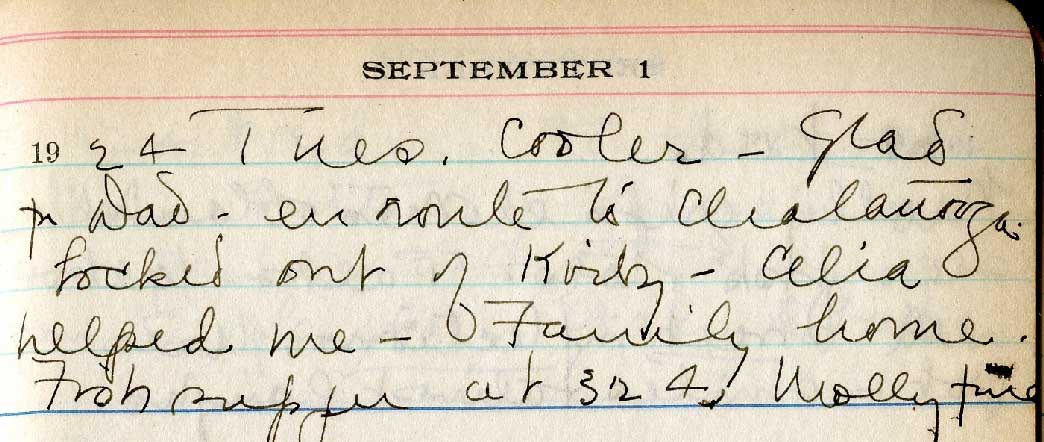 SEPTEMBER 1
1924 Tues. Cooler - Glad
for Dad - en route to Chatanooga.
Locked out of Kirby - Celia
helped me - Family home.
Fish supper at 324, Molly